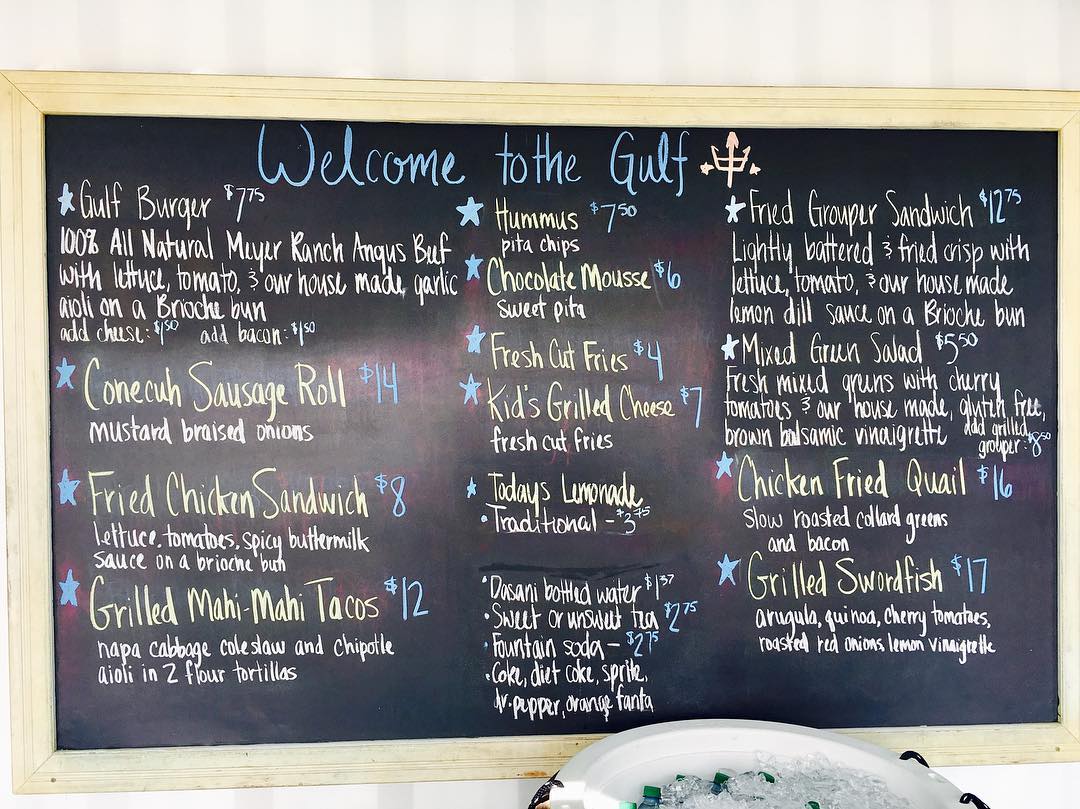 Welcome to the Gulf
Gulf Burger $7.75
100% All Natural Meyer Ranch Angus Beef
with lettuce, tomato, & our house made garlic
aioli on a Brioche bun
add cheese: $1.50 add bacon: $1.50
Conecuh Sausage Roll $14
mustard braised onions
Fried Chicken Sandwich $8
lettuce, tomatoes, spicy buttermilk
sauce on a brioche bun
Grilled Mahi-Mahi Tacos $12
napa cabbage coleslaw and chipotle
aioli in 2 flour tortillas
Hummus $7.50
pita chips
Chocolate Mousse $6
sweet pita
Fresh Cut Fries $4
Kid's Grilled Cheese $7
fresh cut fries
Todays Lemonade
• Traditional - $3.75
• Dasani bottled water $1.37
• Sweet or unsweet tea $2.75
• Fountain soda - $2.75
• Coke, diet coke, sprite,
dr. pepper, orange fanta
Fried Grouper Sandwich $12.75
Lightly battered & fried crisp with
lettuce, tomato, & our house made
lemon dill sauce on a Brioche bun
Mixed Green Salad $5.50
Fresh mixed greens with cherry
tomatoes & our house made, gluten free,
brown balsamic vinaigrette add grilled
grouper: $8.50
Chicken Fried Quail $16
slow roasted collard greens
and bacon
Grilled Swordfish $17
arugula, quinoa, cherry tomatoes,
roasted red onions, lemon vinaigrette